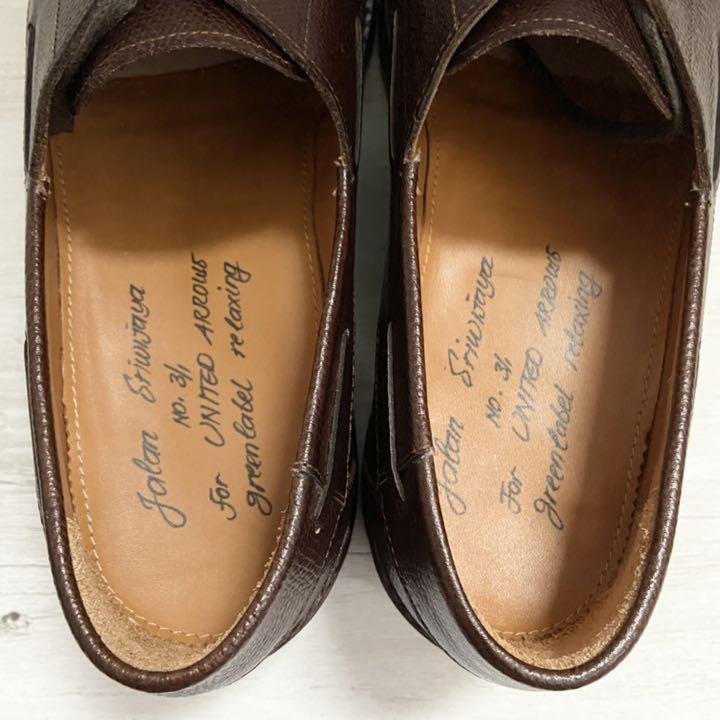 Jalan Sriwijaya
NO. 3/1
for UNITED ARROWS
green label relaxing
Jalan Sriwijaya
NO. 3/1
for UNITED ARROWS
green label relaxing